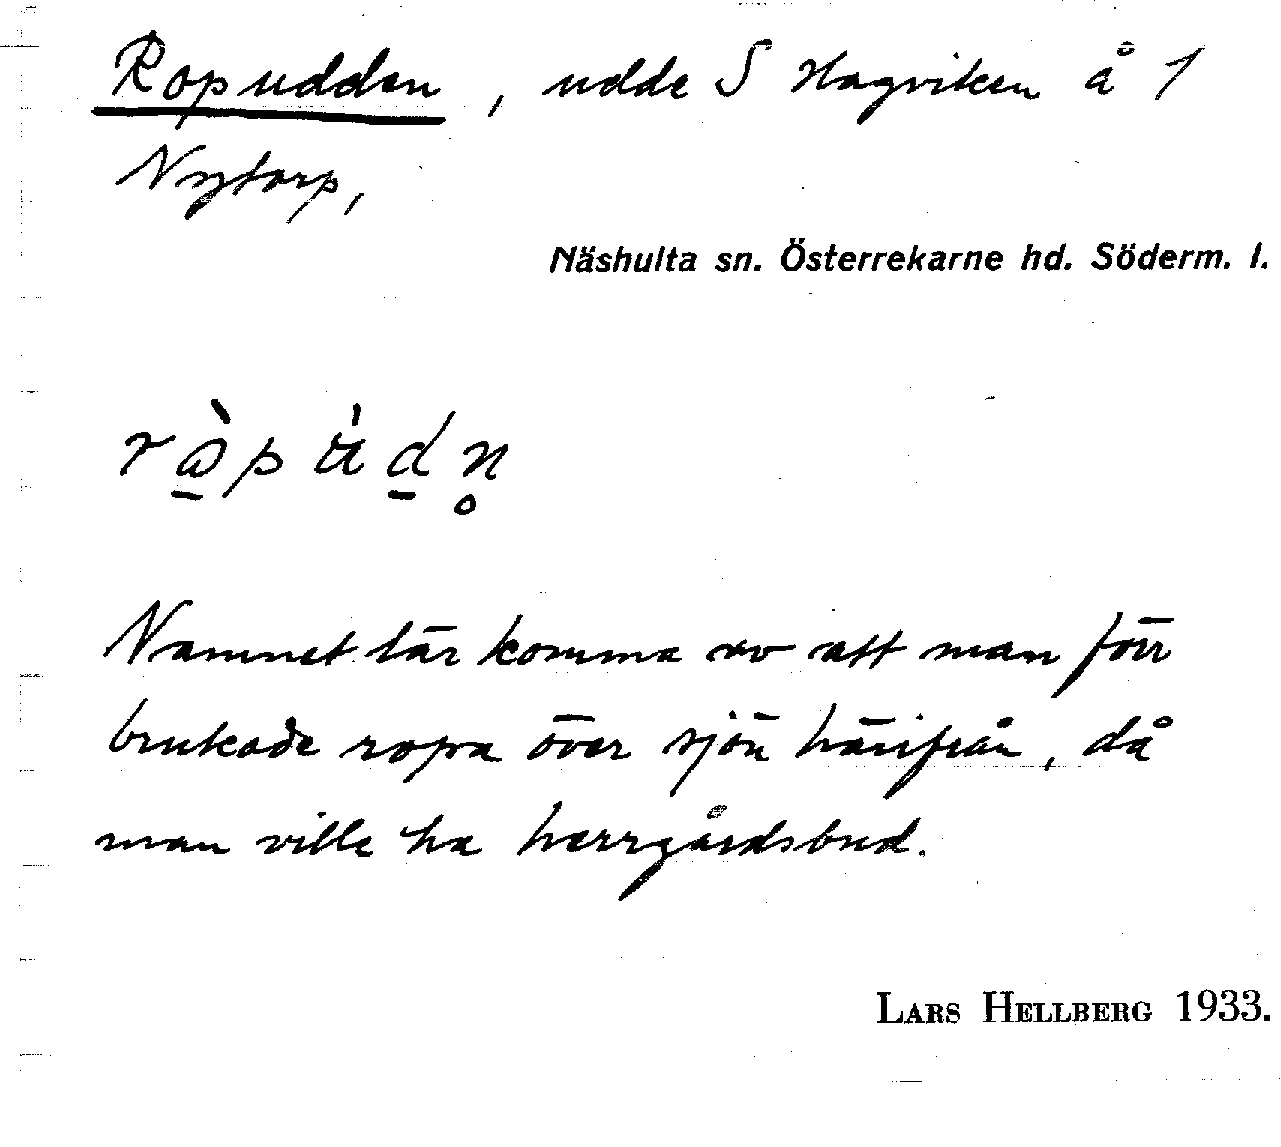 Ropudden, udde S Hagviken å 1
Nytorp,
Näshulta sn. Österrekarne hd. Söderm. l.
Namnet lär komma av att man förr
brukade ropa över sjön härifrån, då
man ville ha herrgårdsbud.
LARS HELLBERG 1933.